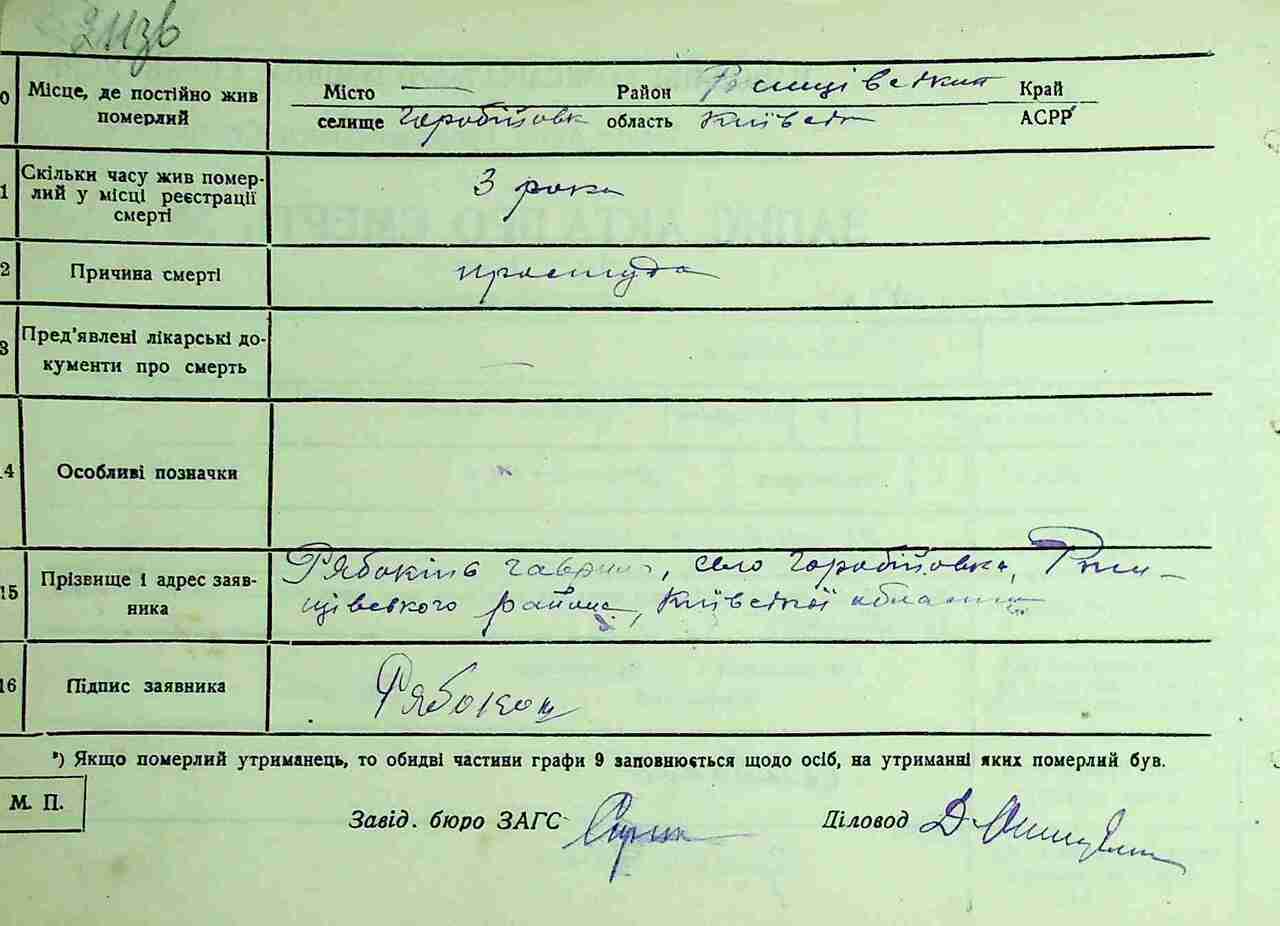 211зв
0 Місце, де постійно жив померлий
Місто — Район Ржищівський Край
селище Горобіївка область Київська АСРР
1 Скільки часу жив помер-
лий у місці реєстрації
смерті
3 роки
2 Причина смерті простуда
3 Пред’явлені лікарські до-
кументи про смерть —
14 Особливі позначки
15 Прізвище і адрес заяв-
ника
Рябокінь Гаврило, село Горобіївка, Ржи-
щівського району, Київської області
16 Підпис заявника Рябокон
*) Якщо померлий утриманець, то обидві частини графи 9 заповнюється щодо осіб, на утриманні яких померлий був.
М. П.
Завід. бюро ЗАГС Діловод